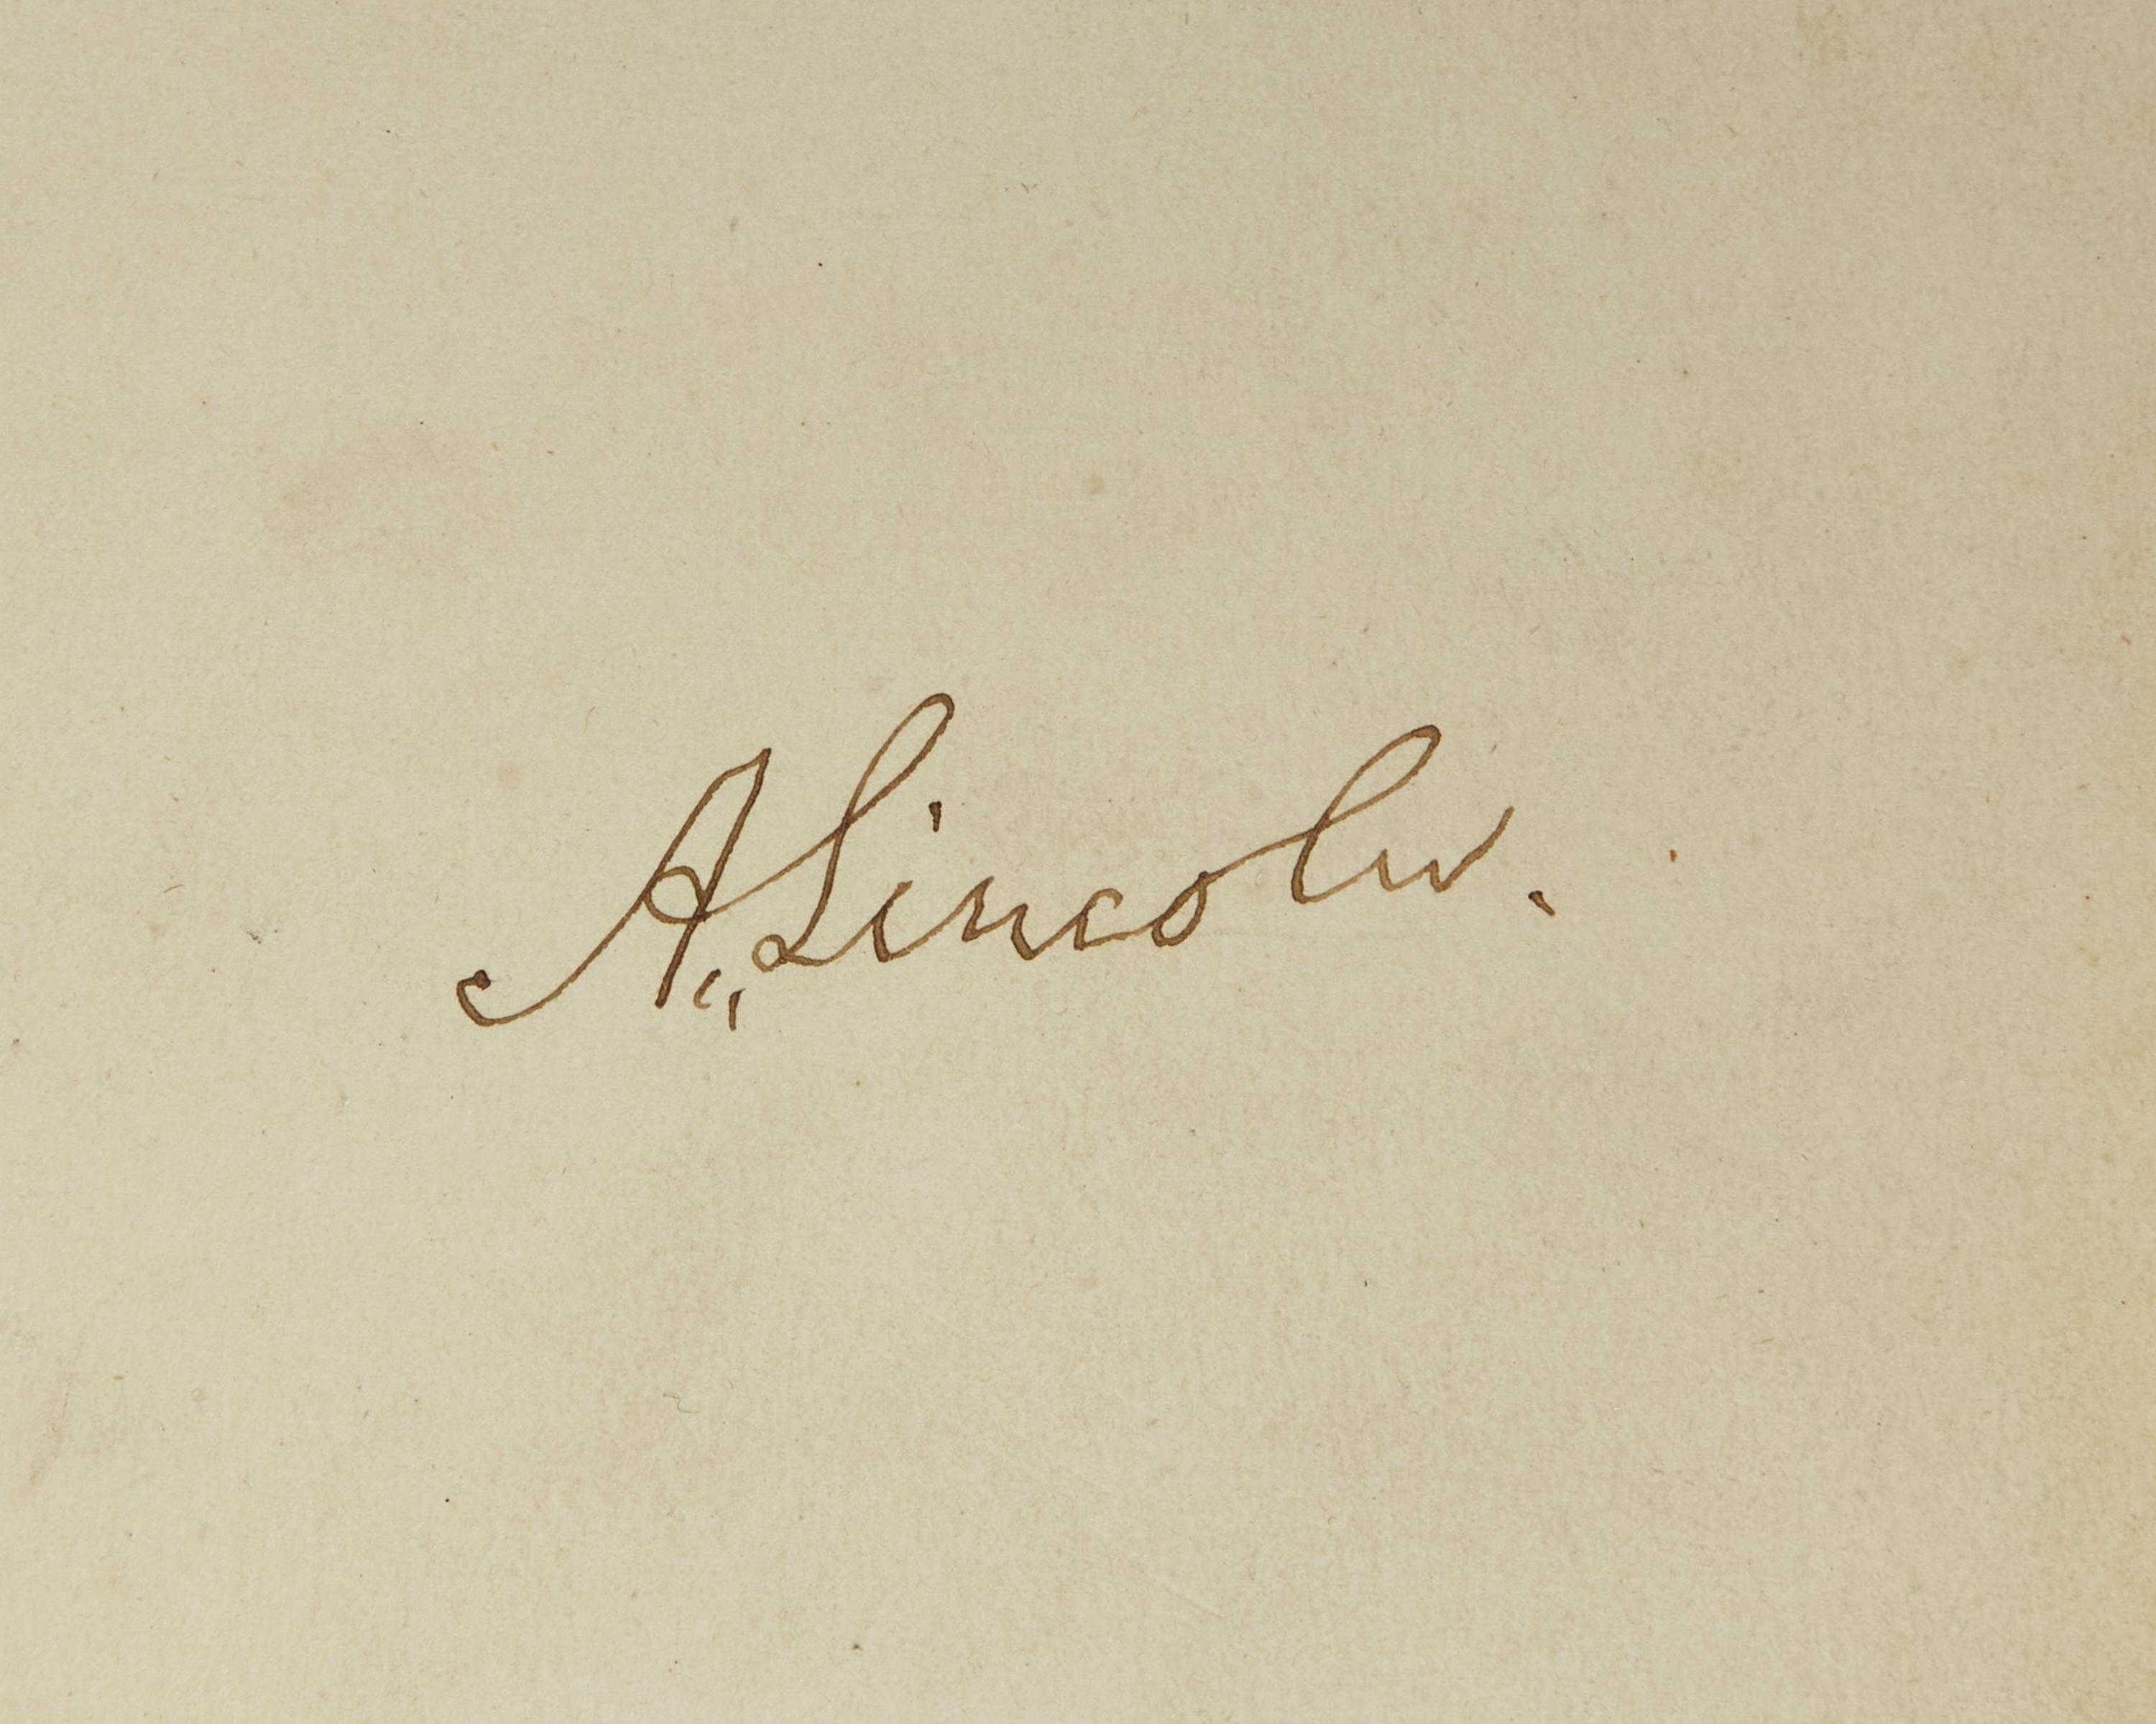 A. Lincoln.